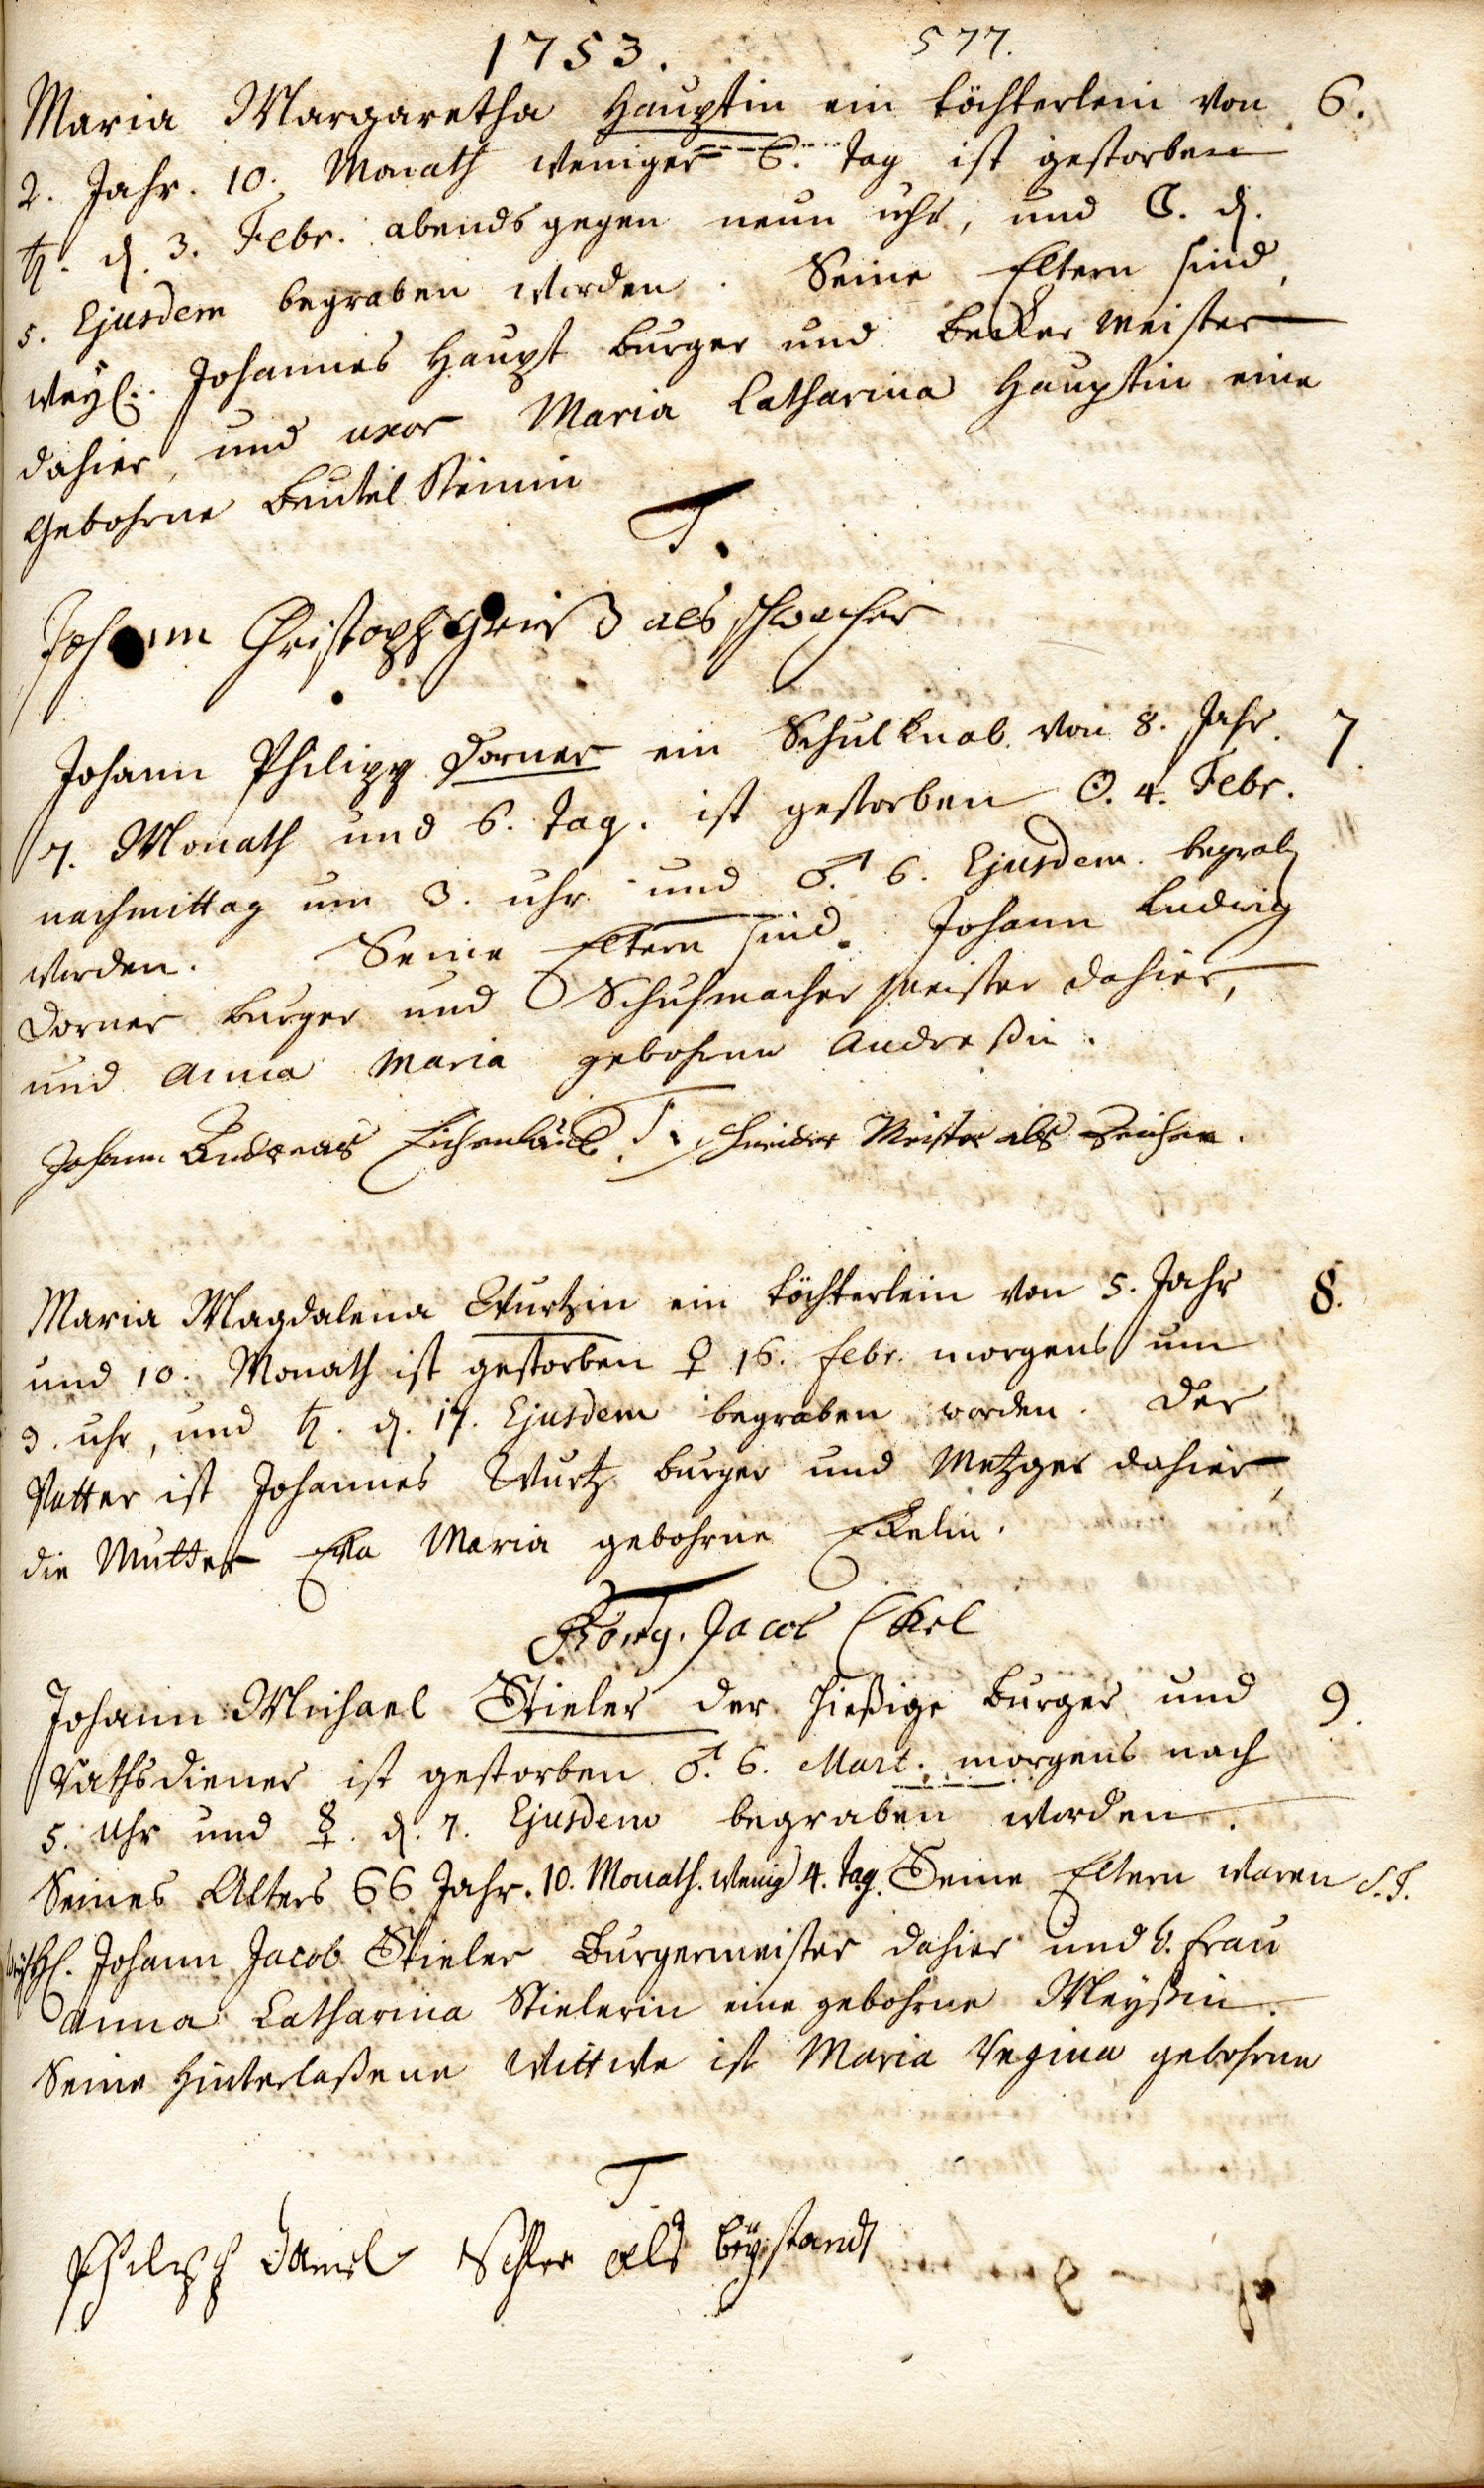 1753. 577.
Maria Margaretha Hauptin ein töchterlein von 6.
2. Jahr. 10. Monath weniger 6. tag ist gestorben
♄. d. 3. Febr. abends gegen neun uhr, und ☾. d.
5. Ejusdem begraben worden. Seine Eltern sind,
weyl. Johannes Haupt burger und becker meister
dahier, und uxor Maria Catharina Hauptin eine
gebohrne
T.
Johann Christoph als
Johann Philipp Dorner ein Schulknab. von 8. Jahr. 7.
7. Monath und 6. tag. ist gestorben ☉. 4. Febr.
nachmittag um 3. uhr und ♂. 6. Ejusdem. begrab
worden. Seine Eltern sind. Johann Ludwig
Dorner burger und Schuhmacher meister dahier,
und Anna Maria gebohrne Andreßin.
Johann Andreas T. schneider Meister als
Maria Magdalena Wurtzin ein töchterlein von 5. Jahr 8.
und 10. Monath ist gestorben ♀ 16. febr. morgens um
3. uhr, und ♄. d. 17. Ejusdem begraben worden. der
Vatter ist Johannes Wurtz burger und Metzger dahier,
die Mutter Eva Maria gebohrne Ekelin.
T
Jacob Ekel
Johann Michael Stieler der hießige burger und 9.
rathsdiener ist gestorben ♂. 6. Mart. morgens nach
5. Uhr und ☿. d. 7. Ejusdem begraben worden.
Seines Alters 66 Jahr. 10. Monath. wenig 4. tag. Seine Eltern waren S. T.
H. Johann Jacob Stieler Burgermeister dahier und d. frau
Anna Catharina Stielerin eine gebohrne Meyßin.
Seine hinterlaßene Wittwe ist Maria Regina gebohrne
T.
Philipp Daniel als beystandt